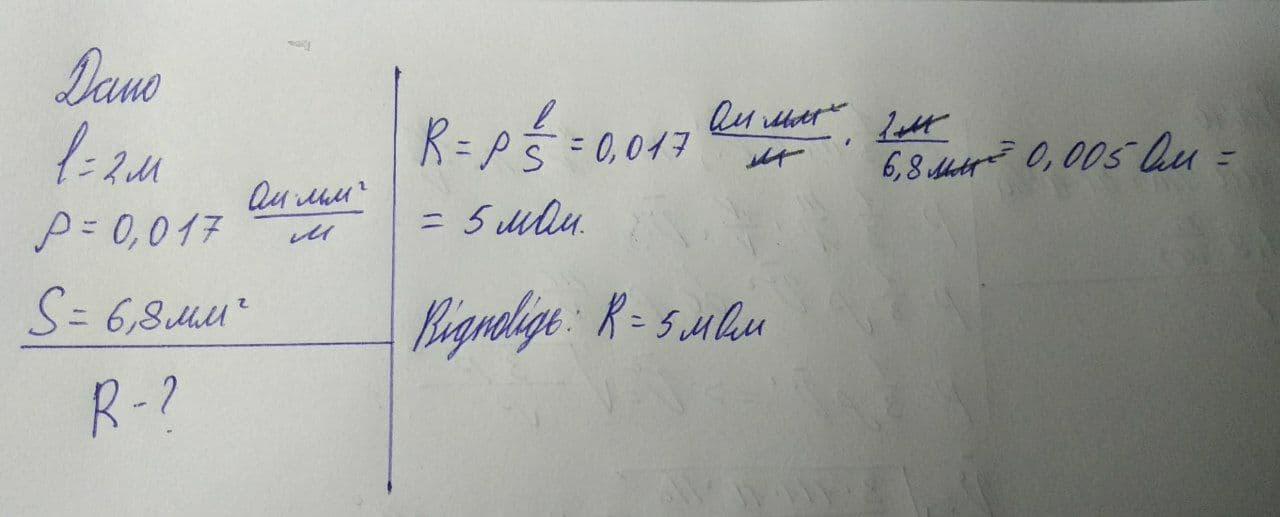 Дано
l = 2м
ρ = 0,017 Ом·мм²/м
S = 6,8 мм²
R - ?
R = ρ l/S = 0,017 Ом мм²/м · 2м/6,8 мм² = 0,005 Ом =
= 5 мОм.
Відповідь: R = 5 мОм